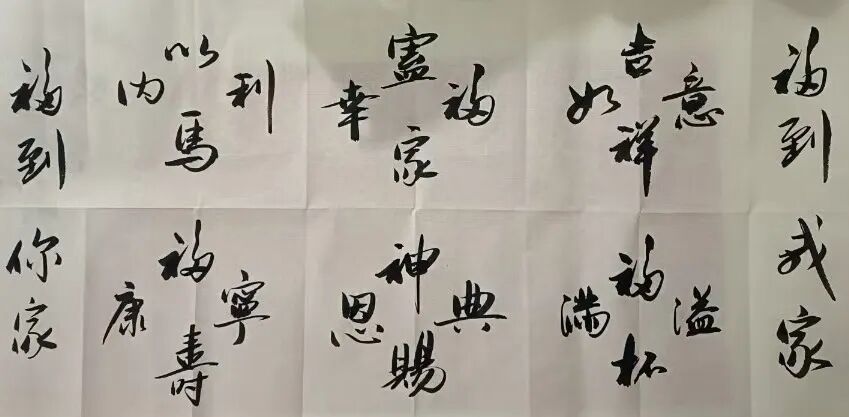 福到我家
吉祥如意
闔家幸福
以馬内利
福杯滿溢
神賜恩典
福壽康寧
福到你家